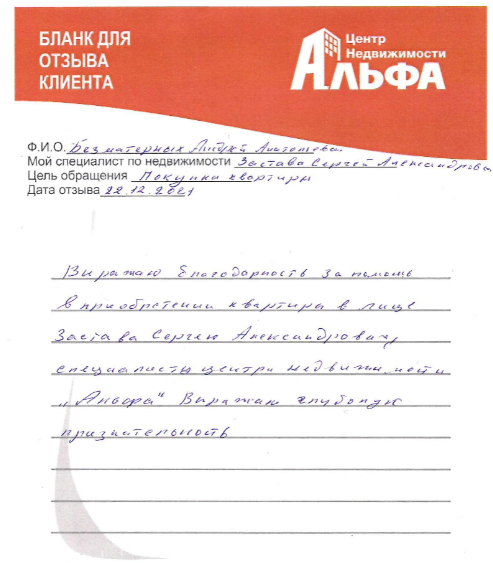 БЛАНК ДЛЯ
ОТЗЫВА
КЛИЕНТА
Центр
Недвижимости
АЛЬФА
Ф.И.О. Безматерных Андрей
Мой специалист по недвижимости Застава Сергей Александрович
Цель обращения Покупка квартиры
Дата отзыва 22.12.2021
Выражаю благодарность за помощь
в приобретении квартира в лице
Застава Сергею Александровичу,
специалисту центра недвижимости
„Альфа“ Выражаю глубокую
признательность